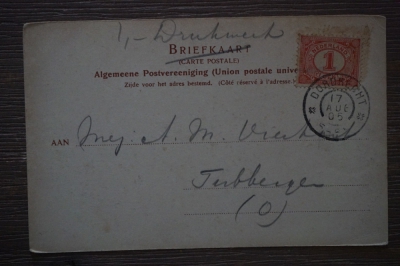 1,- Drukwerk
BRIEFKAART
(CARTE POSTALE)
Algemeene Postvereeniging (Union postale unive
Zijde voor het adres bestemd. (Côté réservé à l'adresse
NEDERLAND
1
DORDRECHT
17
AUG
05
AAN Mej. A. M.
Terbbergen
(O)